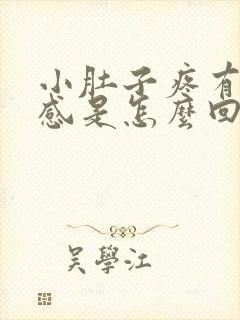 小肚子疼有
感是怎麼回
吳學江